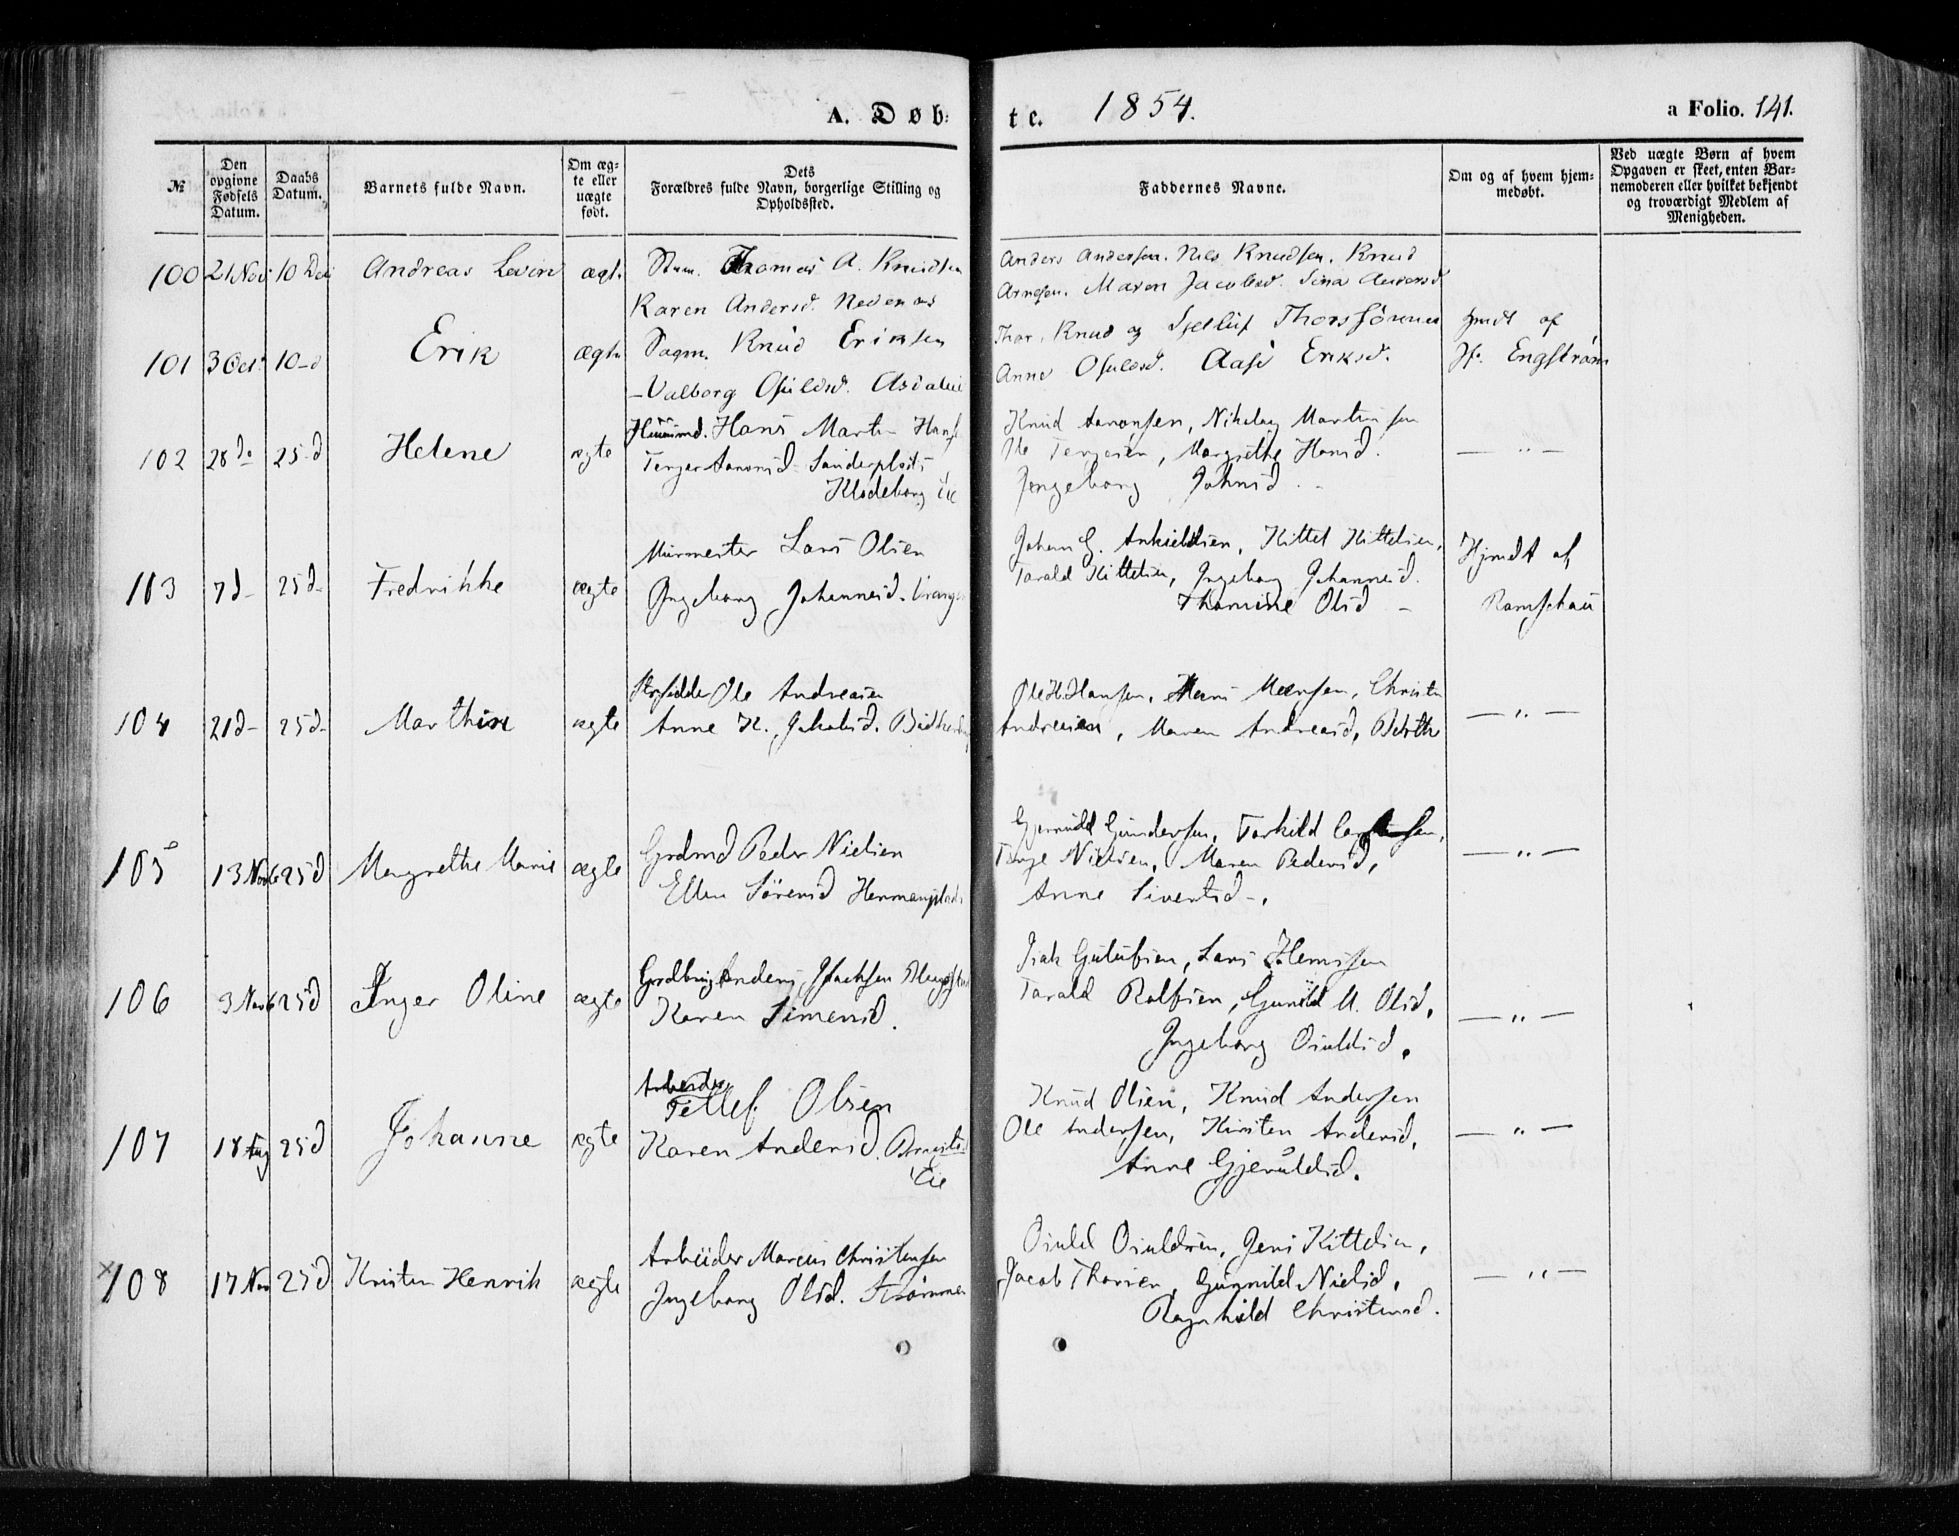 A. Døb: te. 1854. a Folio. 141.
№
Den opgivne Fødsels Datum.
Daabs Datum.
Barnets fulde Navn.
Om ægte eller uægte født.
Dets Forældres fulde Navn, borgerlige Stilling og Opholdssted.
Faddernes Navne.
Om og af hvem hjemmedøbt.
Ved uægte Børn af hvem Opgaven er skeet, enten Barnemoderen eller hvilket bekjendt og troværdigt Medlem af Menigheden.
100 21 Nov 10 Andreas Levin ægt.
Thomas A. Knudsen
Karen Andersd. Nedenæs
Anders Andersen. Nils Knudsen. Knud
Arnesen. Maren Jacobsd. Sina Andersd
101 3 Oct 10 d Erik ægt
Sagm. Knud Eriksen
Valborg Osulsd.
Thor, Knud og
Anne Osulsd. Aase Eriksd.
hjmdt af
Jf. Engstrøm
102 28 do 25 d Helene ægte
Huusmd. Hans Martin Hans
Klodeborg Eie
Knud Aaronsen, Nikolay Martinsen
Ole Terjesen, Margrethe Hansd.
Ingeborg Johnsd.
— „ —
103 7 d 25 d Fredrikke ægte
Murmester Lars Olsen
Ingeborg Johannesd.
Johan G. Kittel Kittelsen,
Tarald Kittelsen, Ingeborg Johannesd.
Thomine Olsd
Hjmdt af
Ramschau
104 21 d 25 d Marthin ægte
Ole Andreasen
Anne K. Jakobsd.
Ole H. Hansen, Hans Christen
Andreasen, Maren Andreasd,
— „ —
105 13 Novb 25 d Margrethe Marie ægte
Grdmd Peder Nielsen
Ellen Sørensd
Gjeruld Gundersen, Torkild
Terje Nielsen, Maren Pedersd,
Anne Sivertsd.
— „ —
106 3 Novb 25 d Inger Oline ægte
Anders Isachsen
Karen Simensd.
Isak Gutufsen, Lars
Tarald Rolfsen, Gunild M. Olsd.
Ingeborg Osuldsd.
— „ —
107 18 Aug 25 d Johanne ægte
Arbeider
Tellef Olsen
Karen Andersd.
Eie
Knud Olsen, Knud Andersen
Ole Andersen, Kirsten Andersd,
Anne Gjeruldsd.
— „ —
108 17 Nov 25 d Kristen Henrik ægte
Arbeider Marcus Christensen
Ingeborg Olsd. Strømmen
Osuld Osuldsen, Jens Kittelsen,
Jacob Thorsen, Gunnild Nielsd,
Ragnhild Christensd.
— „ —